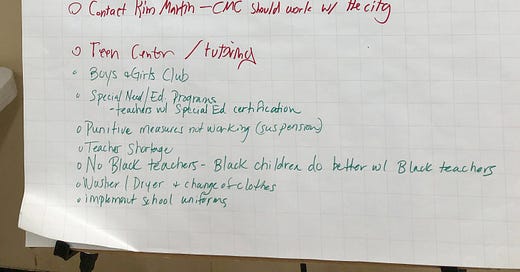 ○ Contact Kim Martin - CMC should work w/ the city
○ Teen Center / tutoring
○ Boys & Girls Club
○ Special Need/Ed. Programs
- teachers w/ Special Ed certification
○ Punitive measures not working (suspension)
○ Teacher Shortage
○ No Black teachers - Black children do better w/ Black teachers
○ Washer / Dryer + change of clothes
○ implement school uniforms